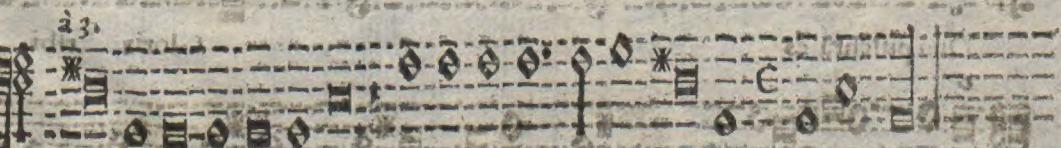 à 3.